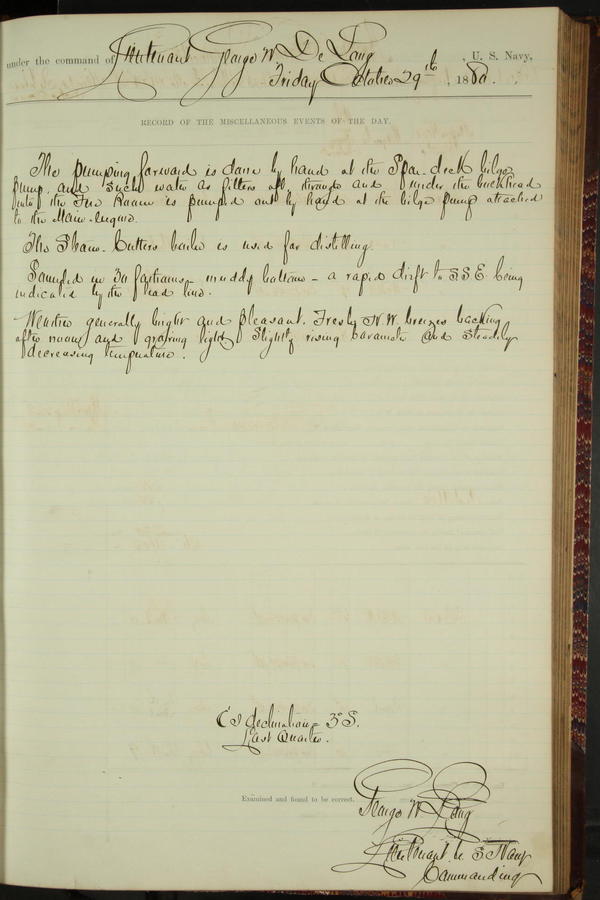 under the command of Lieutenant George W. De Long, U. S. Navy,
Friday October 29th, 1880.
RECORD OF THE MISCELLANEOUS EVENTS OF THE DAY.
The pumping forward is done by hand at the Spar-deck bilge
pump, and such water as filters aft, through and under the bulkhead
into the Fire Room is pumped out by hand at the bilge pump attached
to the Main-Engine.
The Steam-Cutters boiler is used for distilling
Sounded in 30 fathoms - muddy bottom - a rapid drift to S.S.E. being
indicated by the lead line.
Weather generally bright and pleasant. Fresh N.W. breezes backing
after noon and growing light. Slightly rising barometer and steadily
decreasing temperature.
declination - 3° S.
Last Quarter.
Examined and found to be correct.
George W. De Long
Lieutenant U. S. Navy
Commanding